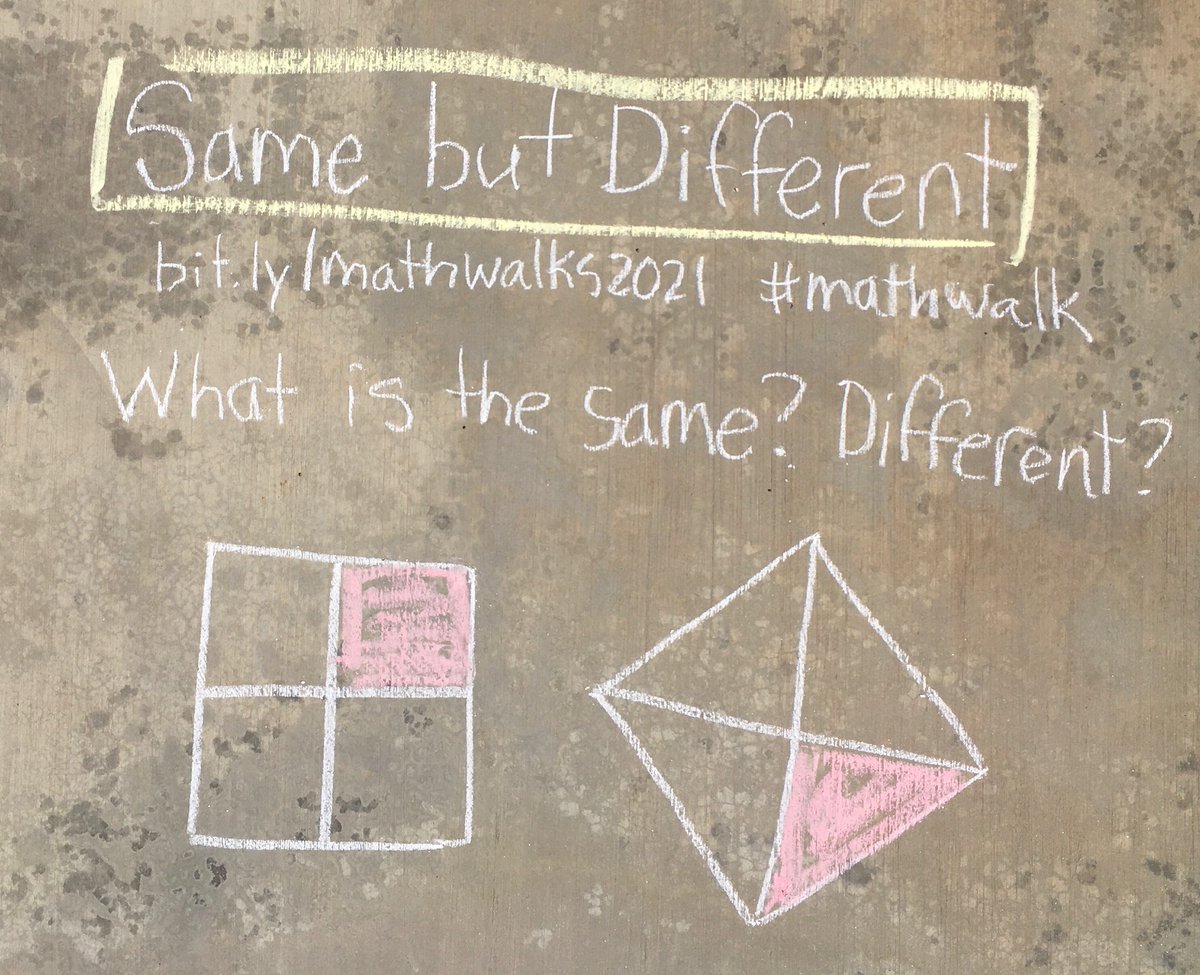 Same but Different
bit.ly/mathwalks2021 #mathwalk
What is the same? Different?